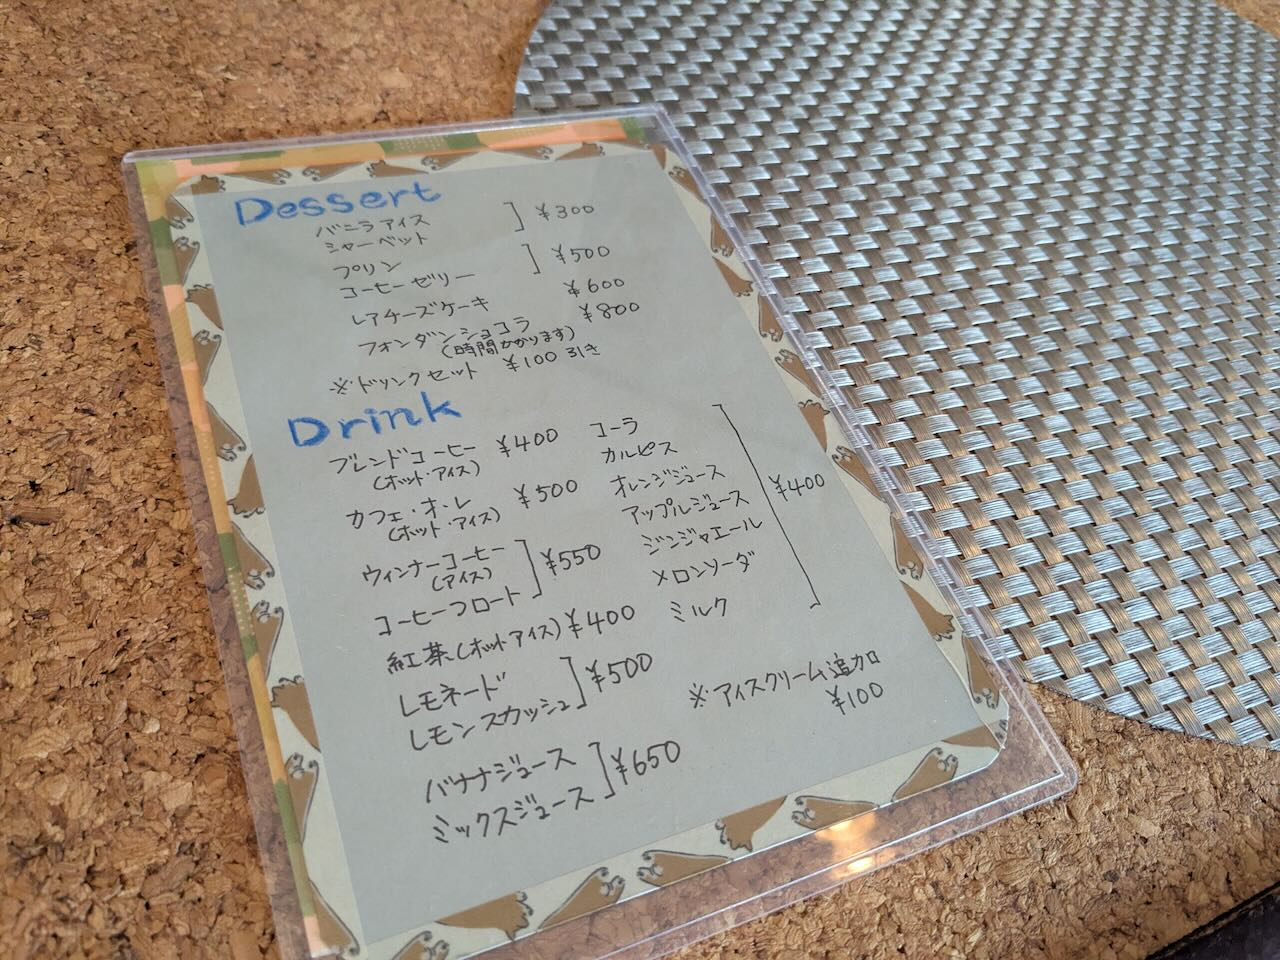 Dessert
バニラアイス
シャーベット ¥300
プリン
コーヒーゼリー ¥500
レアチーズケーキ ¥600
フォンダンショコラ ¥800
(時間かかります)
※ドリンクセット ¥100引き
Drink
ブレンドコーヒー ¥400
(ホット・アイス)
カフェ・オ・レ ¥500
(ホット・アイス)
ウィンナーコーヒー
(アイス)
コーヒーフロート ¥550
紅茶(ホットアイス) ¥400
レモネード
レモンスカッシュ ¥500
バナナジュース
ミックスジュース ¥650
コーラ
カルピス
オレンジジュース
アップルジュース
ジンジャエール
メロンソーダ
ミルク
¥400
※アイスクリーム追加
¥100